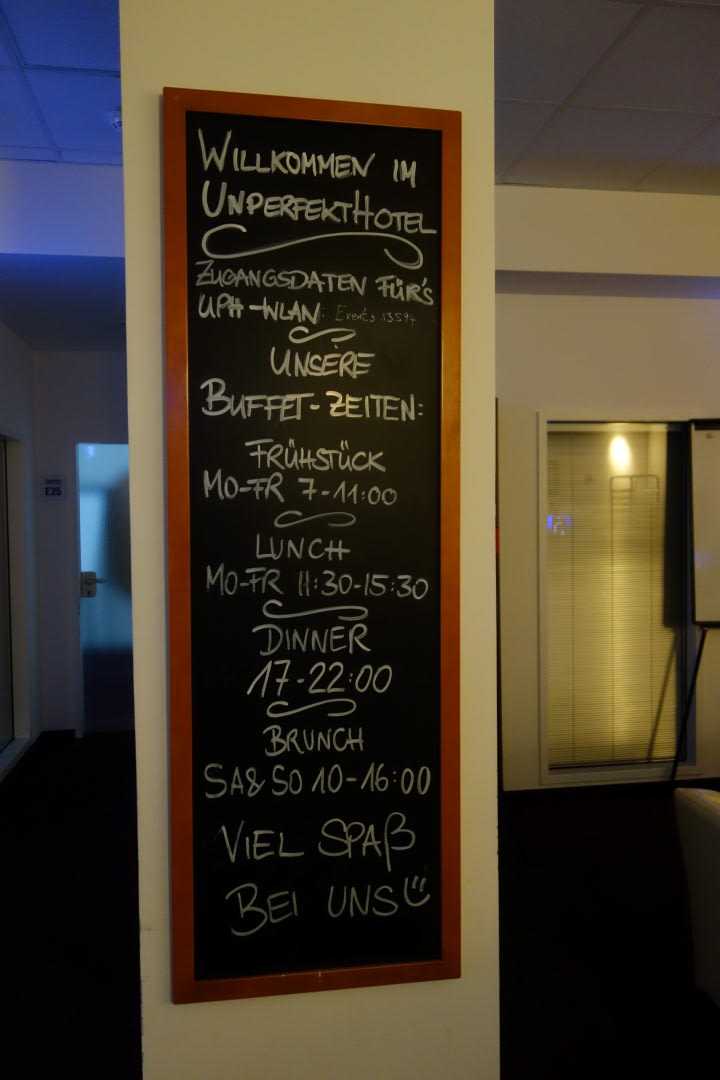 WILLKOMMEN IM
UNPERFEKTHOTEL
ZUGANGSDATEN FÜR'S
UPH-WLAN:
UNSERE
BUFFET-ZEITEN:
FRÜHSTÜCK
MO-FR 7-11:00
LUNCH
MO-FR 11:30-15:30
DINNER
17-22:00
BRUNCH
SA & SO 10-16:00
VIEL SPAß
BEI UNS
E25